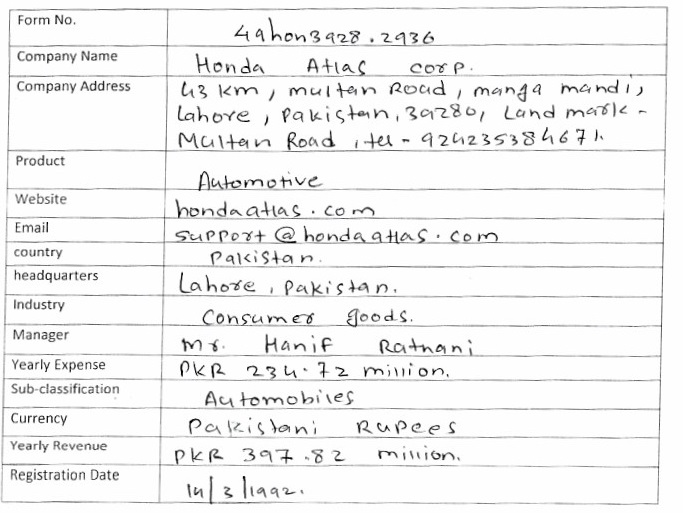 Form No. 49hon3928.2936
Company Name Honda Atlas corp.
Company Address 43 km, multan Road, manga mandi,
Lahore, Pakistan, 39280, Land mark -
Multan Road, tel - 924235384671.
Product Automotive
Website hondaatlas.com
Email support@hondaatlas.com
country Pakistan.
headquarters Lahore, Pakistan.
Industry Consumer goods.
Manager Mr. Hanif Ratnani
Yearly Expense PKR 234.72 million.
Sub-classification Automobiles
Currency Pakistani Rupees
Yearly Revenue PKR 397.82 million.
Registration Date 14/3/1992.